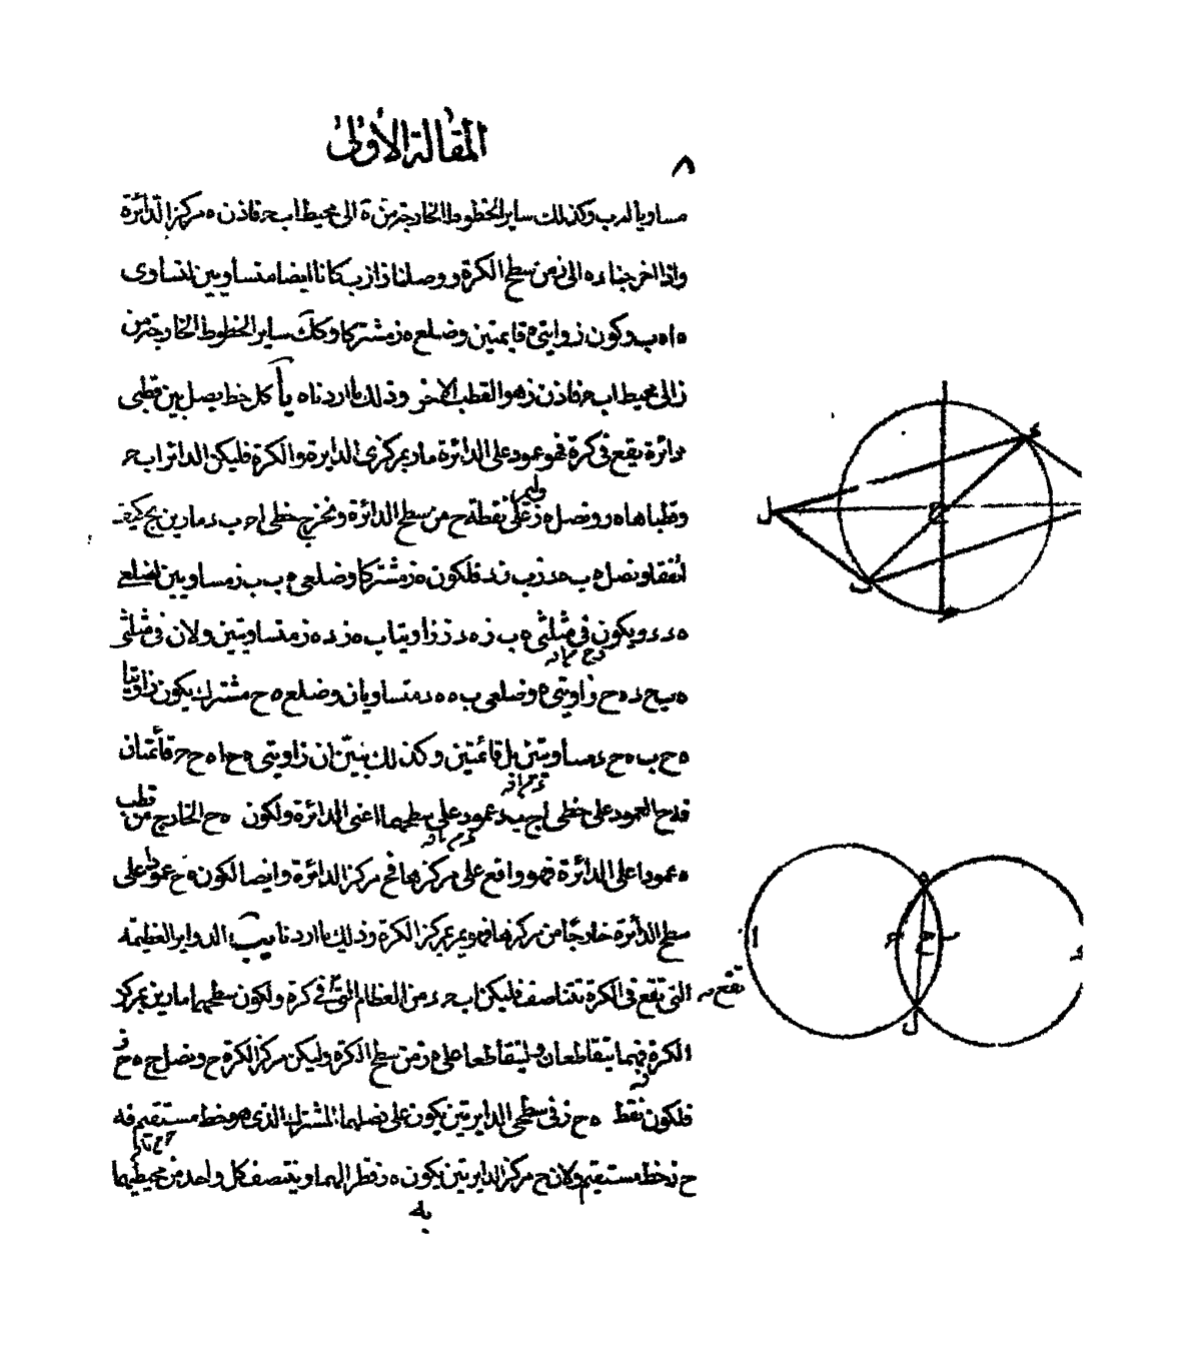 المقالة الأولى
٨
مساويا له ب وكذلك ساير الخطوط الخارجة من ه الى محيط اب ح فاذن ه مركز الدائرة
واذا اخرجنا ء ه الى ز من سطح الكرة ووصلنا ز ا ز ب كانا ايضا متساويين لتساوى
ه ا ه ب وكون زوايتى ه قايمتين وضلع ه ز مشتركا وكك ساير الخطوط الخارجة من
ز الى محيط اب ح فاذن ز هو القطب الاخر وذلك ما اردناه يا كل خط يصل بين قطبى
دائرة يقع فى كرة فهو عمود على الدائرة مار بمركزى الدايرة والكرة فليكن الدائر اب ح
وقطباها ه ز ونصل ه ز وليمر على نقطة ح من سطح الدائرة ونخرج خطى ا ح ب ء مارين بح كيف
اتفقا ونصل ه ب ه د ز ب ز د فلكون ه ز مشتركا وضلعى ه ب ب ز مساويين لضلعى
ه د د ز ويكون فى مثلثى ه ب ز ه د ز زاويتا ب ه ز د ه ز متساويتين ولان فى مثلثى
ه ب ح د ه ح زاويتى ه وضلعى ب ه ه د متساويان وضلع ه ح مشترك يكون زاويتا
ه ح ب ه ح ء مساويتين بل قائمتين وكذلك نبين ان زاويتى ه ح ا ه ح ح قائمتان
فه ح العمود على خطى ا ح ب ء عمود على سطحهما اعنى الدائرة ولكون ه ح الخارج من قطب
ه عمودا على الدائرة فهو واقع على مركزها فح مركز الدائرة وايضا لكون ه ح عمودا على
سطح الدائرة خارجا من مركزها فهو يمر بمركز الكرة وذلك ما اردنا يب الدواير العظيمة
التى تقع فى الكرة تتناصف فليكن اب ح ء من العظام التى تقع فى كرة ولكون سطحيهما مارين بمركز
الكرة فهما يتقاطعان وليتقاطعا على ه ز من سطح الكرة وليكن مركز الكرة ح ونصل ح ه ح ز
فلكون نقط ه ح ز فى سطحى الدايرتين يكون على فصلهما المشترك الذى هو خط مستقيم فه
ح ز خط مستقيم ولان ح مركز الدايرتين يكون ه ز قطرا لهما وينتصف كل واحد من محيطيهما
به